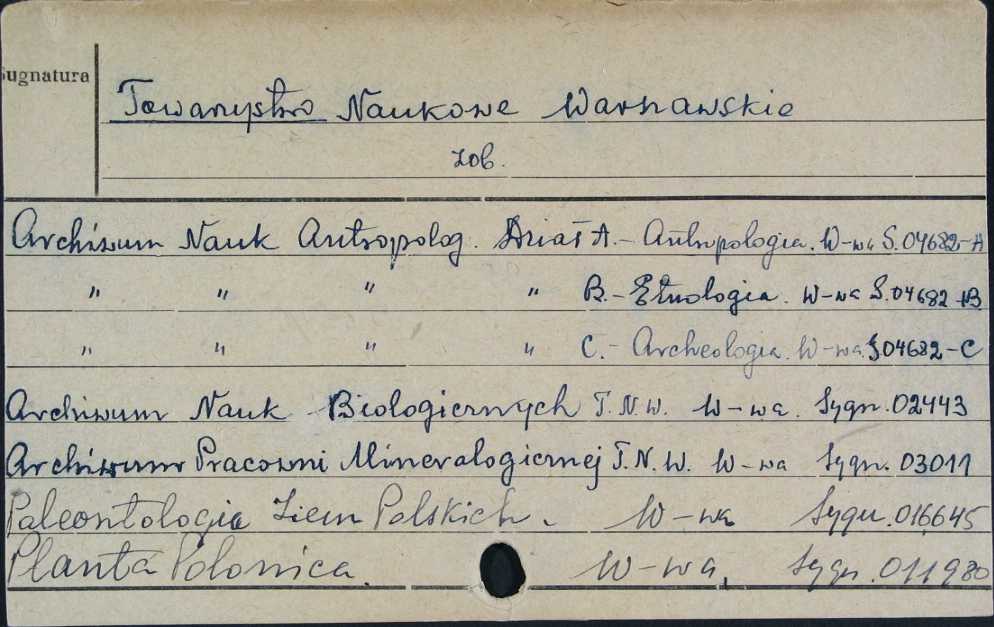 Sygnatura
Towarzystwo Naukowe Warszawskie
zob.
Archiwum Nauk Antropolog. Dział A.- Antropologia. W-wa S.04682-A
" " " " B.- Etnologia. W-wa S.04682-B
" " " " C.- Archeologia. W-wa. S.04682-C
Archiwum Nauk Biologicznych T.N.W. W-wa. Sygn. 02443
Archiwum Pracowni Mineralogicznej T.N.W. W-wa Sygn. 03011
Paleontologia Ziem Polskich. W-wa Sygn. 016645
Planta Polonica. W-wa, Sygn. 011980